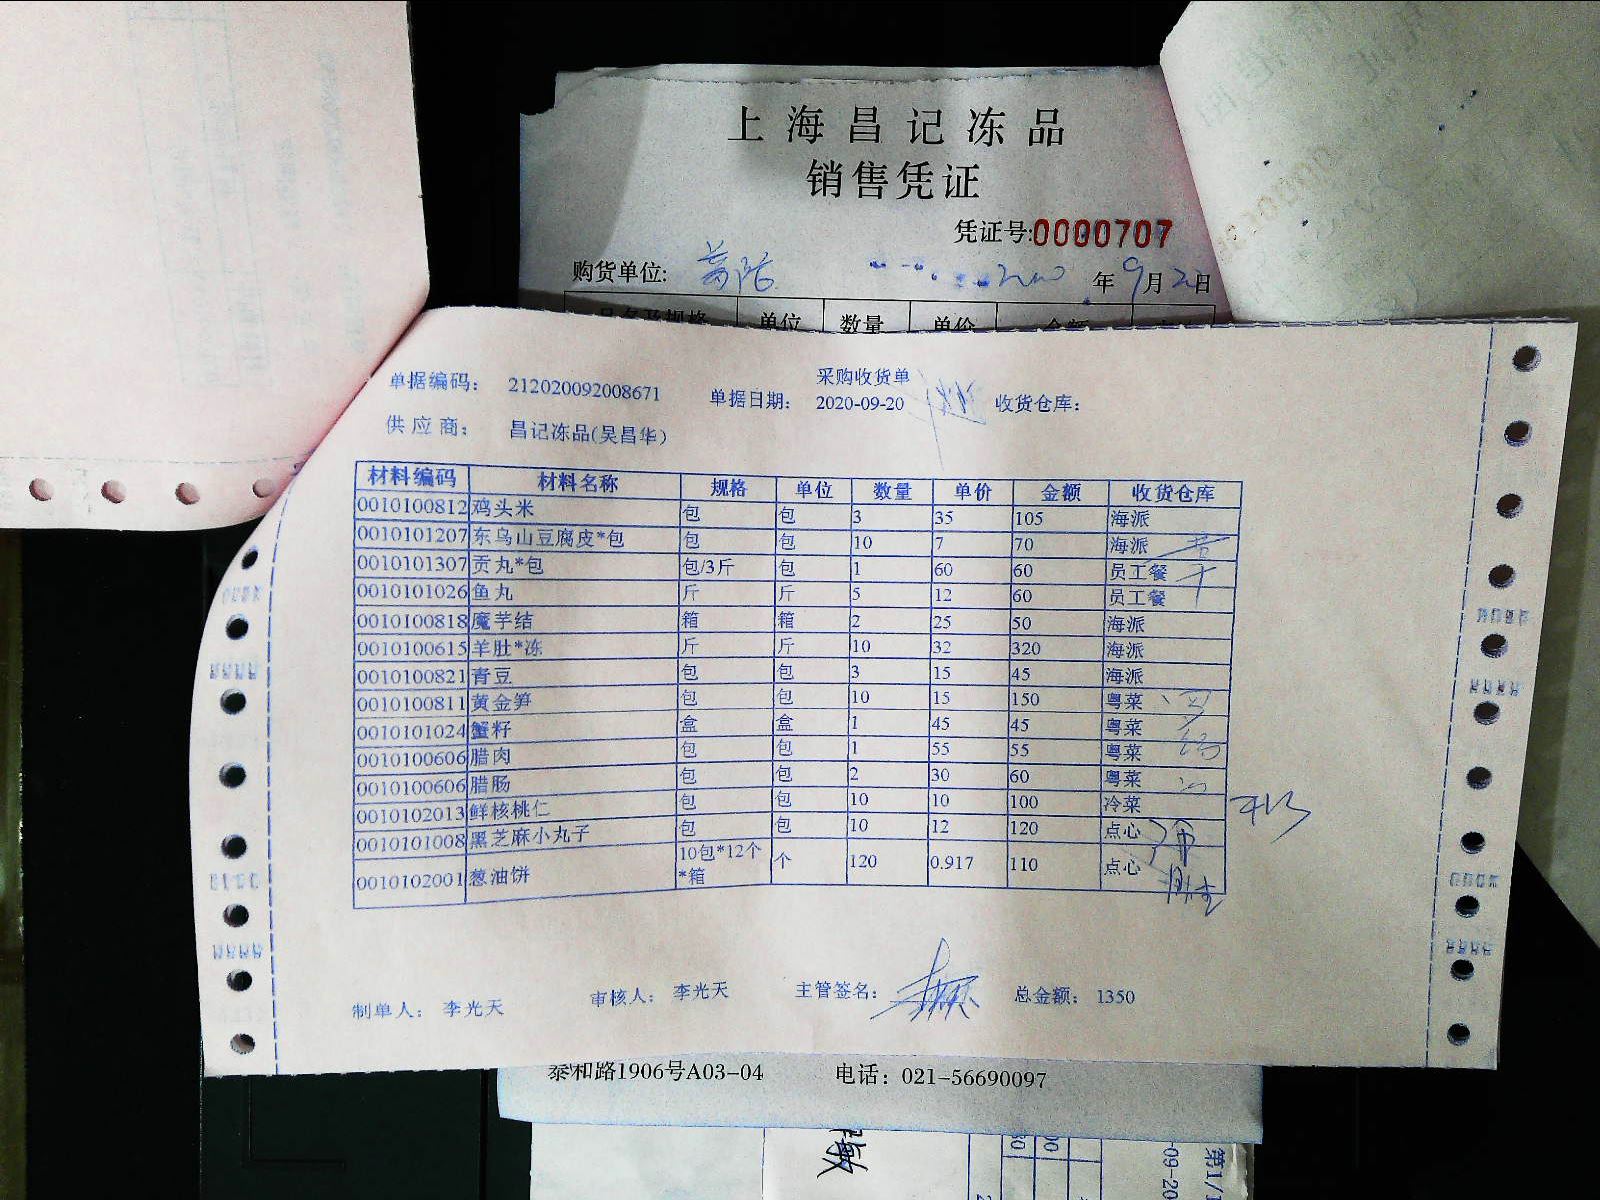 上海昌记冻品
销售凭证
凭证号:0000707
购货单位: 年9月2日
品名及规格 单位 数量 单价 金额
采购收货单
单据编码: 212020092008671 单据日期: 2020-09-20 收货仓库:
供应商: 昌记冻品(吴昌华)
材料编码 材料名称 规格 单位 数量 单价 金额 收货仓库
0010100812 鸡头米 包 包 3 35 105 海派
0010101207 东乌山豆腐皮*包 包 包 10 7 70 海派
0010101307 贡丸*包 包/3斤 包 1 60 60 员工餐
0010101026 鱼丸 斤 斤 5 12 60 员工餐
0010100818 魔芋结 箱 箱 2 25 50 海派
0010100615 羊肚*冻 斤 斤 10 32 320 海派
0010100821 青豆 包 包 3 15 45 海派
0010100811 黄金笋 包 包 10 15 150 粤菜
0010101024 蟹籽 盒 盒 1 45 45 粤菜
0010100606 腊肉 包 包 1 55 55 粤菜
0010100606 腊肠 包 包 2 30 60 粤菜
0010102013 鲜核桃仁 包 包 10 10 100 冷菜
0010101008 黑芝麻小丸子 包 包 10 12 120 点心
0010102001 葱油饼 10包*12个*箱 个 120 0.917 110 点心
制单人: 李光天 审核人: 李光天 主管签名: 总金额: 1350
泰和路1906号A03-04 电话: 021-56690097